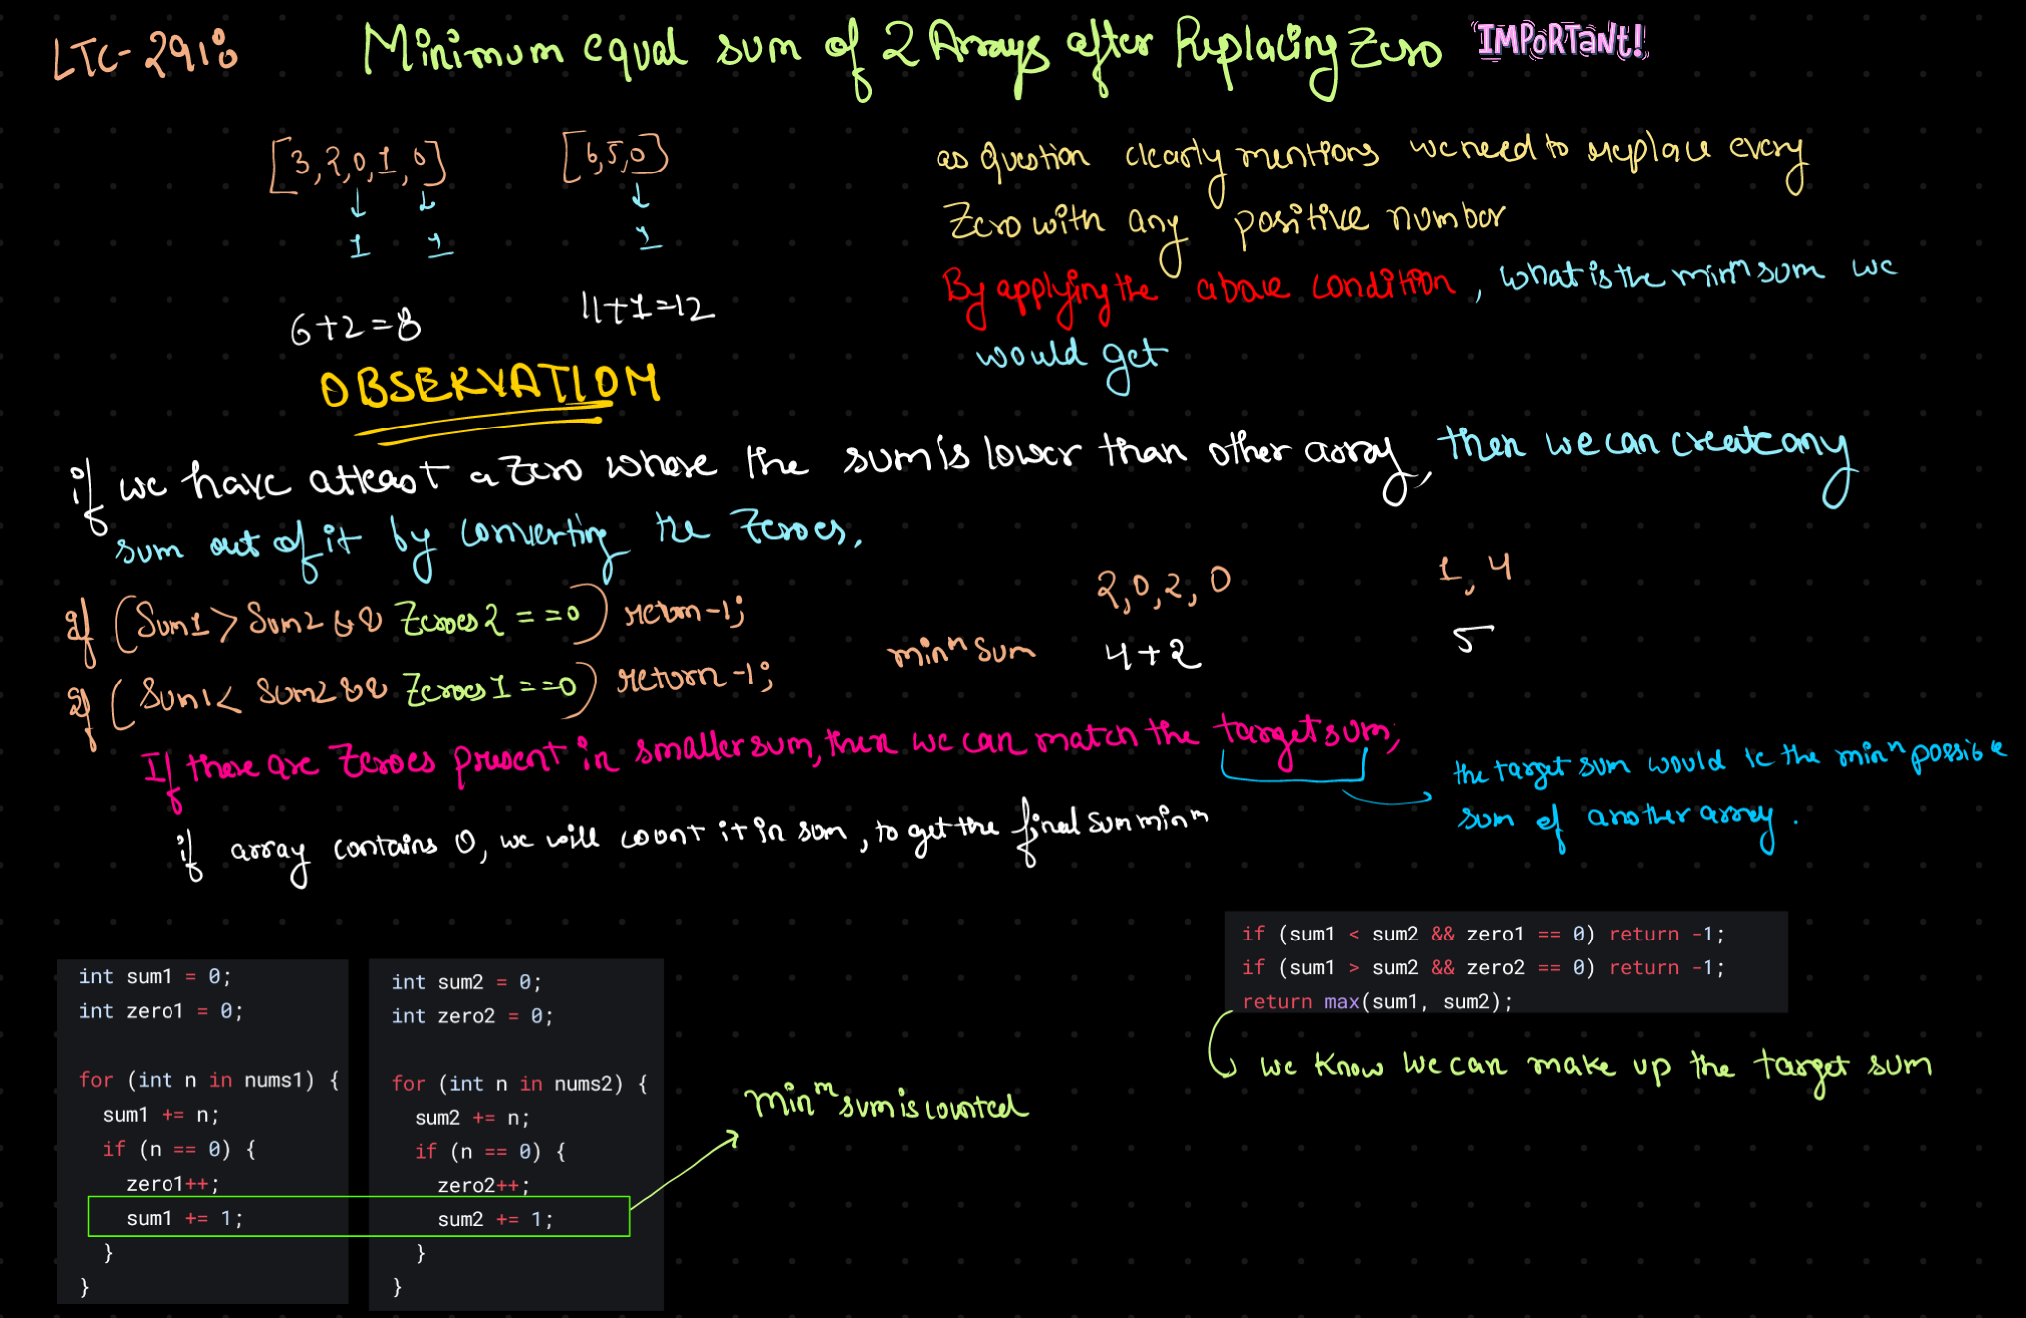 LTC-2918 Minimum equal sum of 2 Arrays after Replacing Zero IMPORTANT!
[3,2,0,1,0] [6,5,0]
↓ ↓ ↓
1 1 1
6+2=8 11+1=12
as question clearly mentions we need to replace every
Zero with any positive number
By applying the above condition, what is the minm sum we
would get
OBSERVATION
if we have atleast a Zero where the sum is lower than other array, then we can create any
sum out of it by converting the Zeroes.
if (Sum1 > Sum2 && Zeroes2 ==0) return -1;
if (Sum1 < Sum2 && Zeroes1 ==0) return -1;
2,0,2,0 1,4
minm sum 4+2 5
If there are Zeroes present in smaller sum, then we can match the target sum;
the target sum would be the minm possible
sum of another array.
if array contains 0, we will count it in sum, to get the final sum minm
int sum1 = 0;
int zero1 = 0;
for (int n in nums1) {
sum1 += n;
if (n == 0) {
zero1++;
sum1 += 1;
}
}
int sum2 = 0;
int zero2 = 0;
for (int n in nums2) {
sum2 += n;
if (n == 0) {
zero2++;
sum2 += 1;
}
}
minm sum is counted
if (sum1 < sum2 && zero1 == 0) return -1;
if (sum1 > sum2 && zero2 == 0) return -1;
return max(sum1, sum2);
we know we can make up the target sum